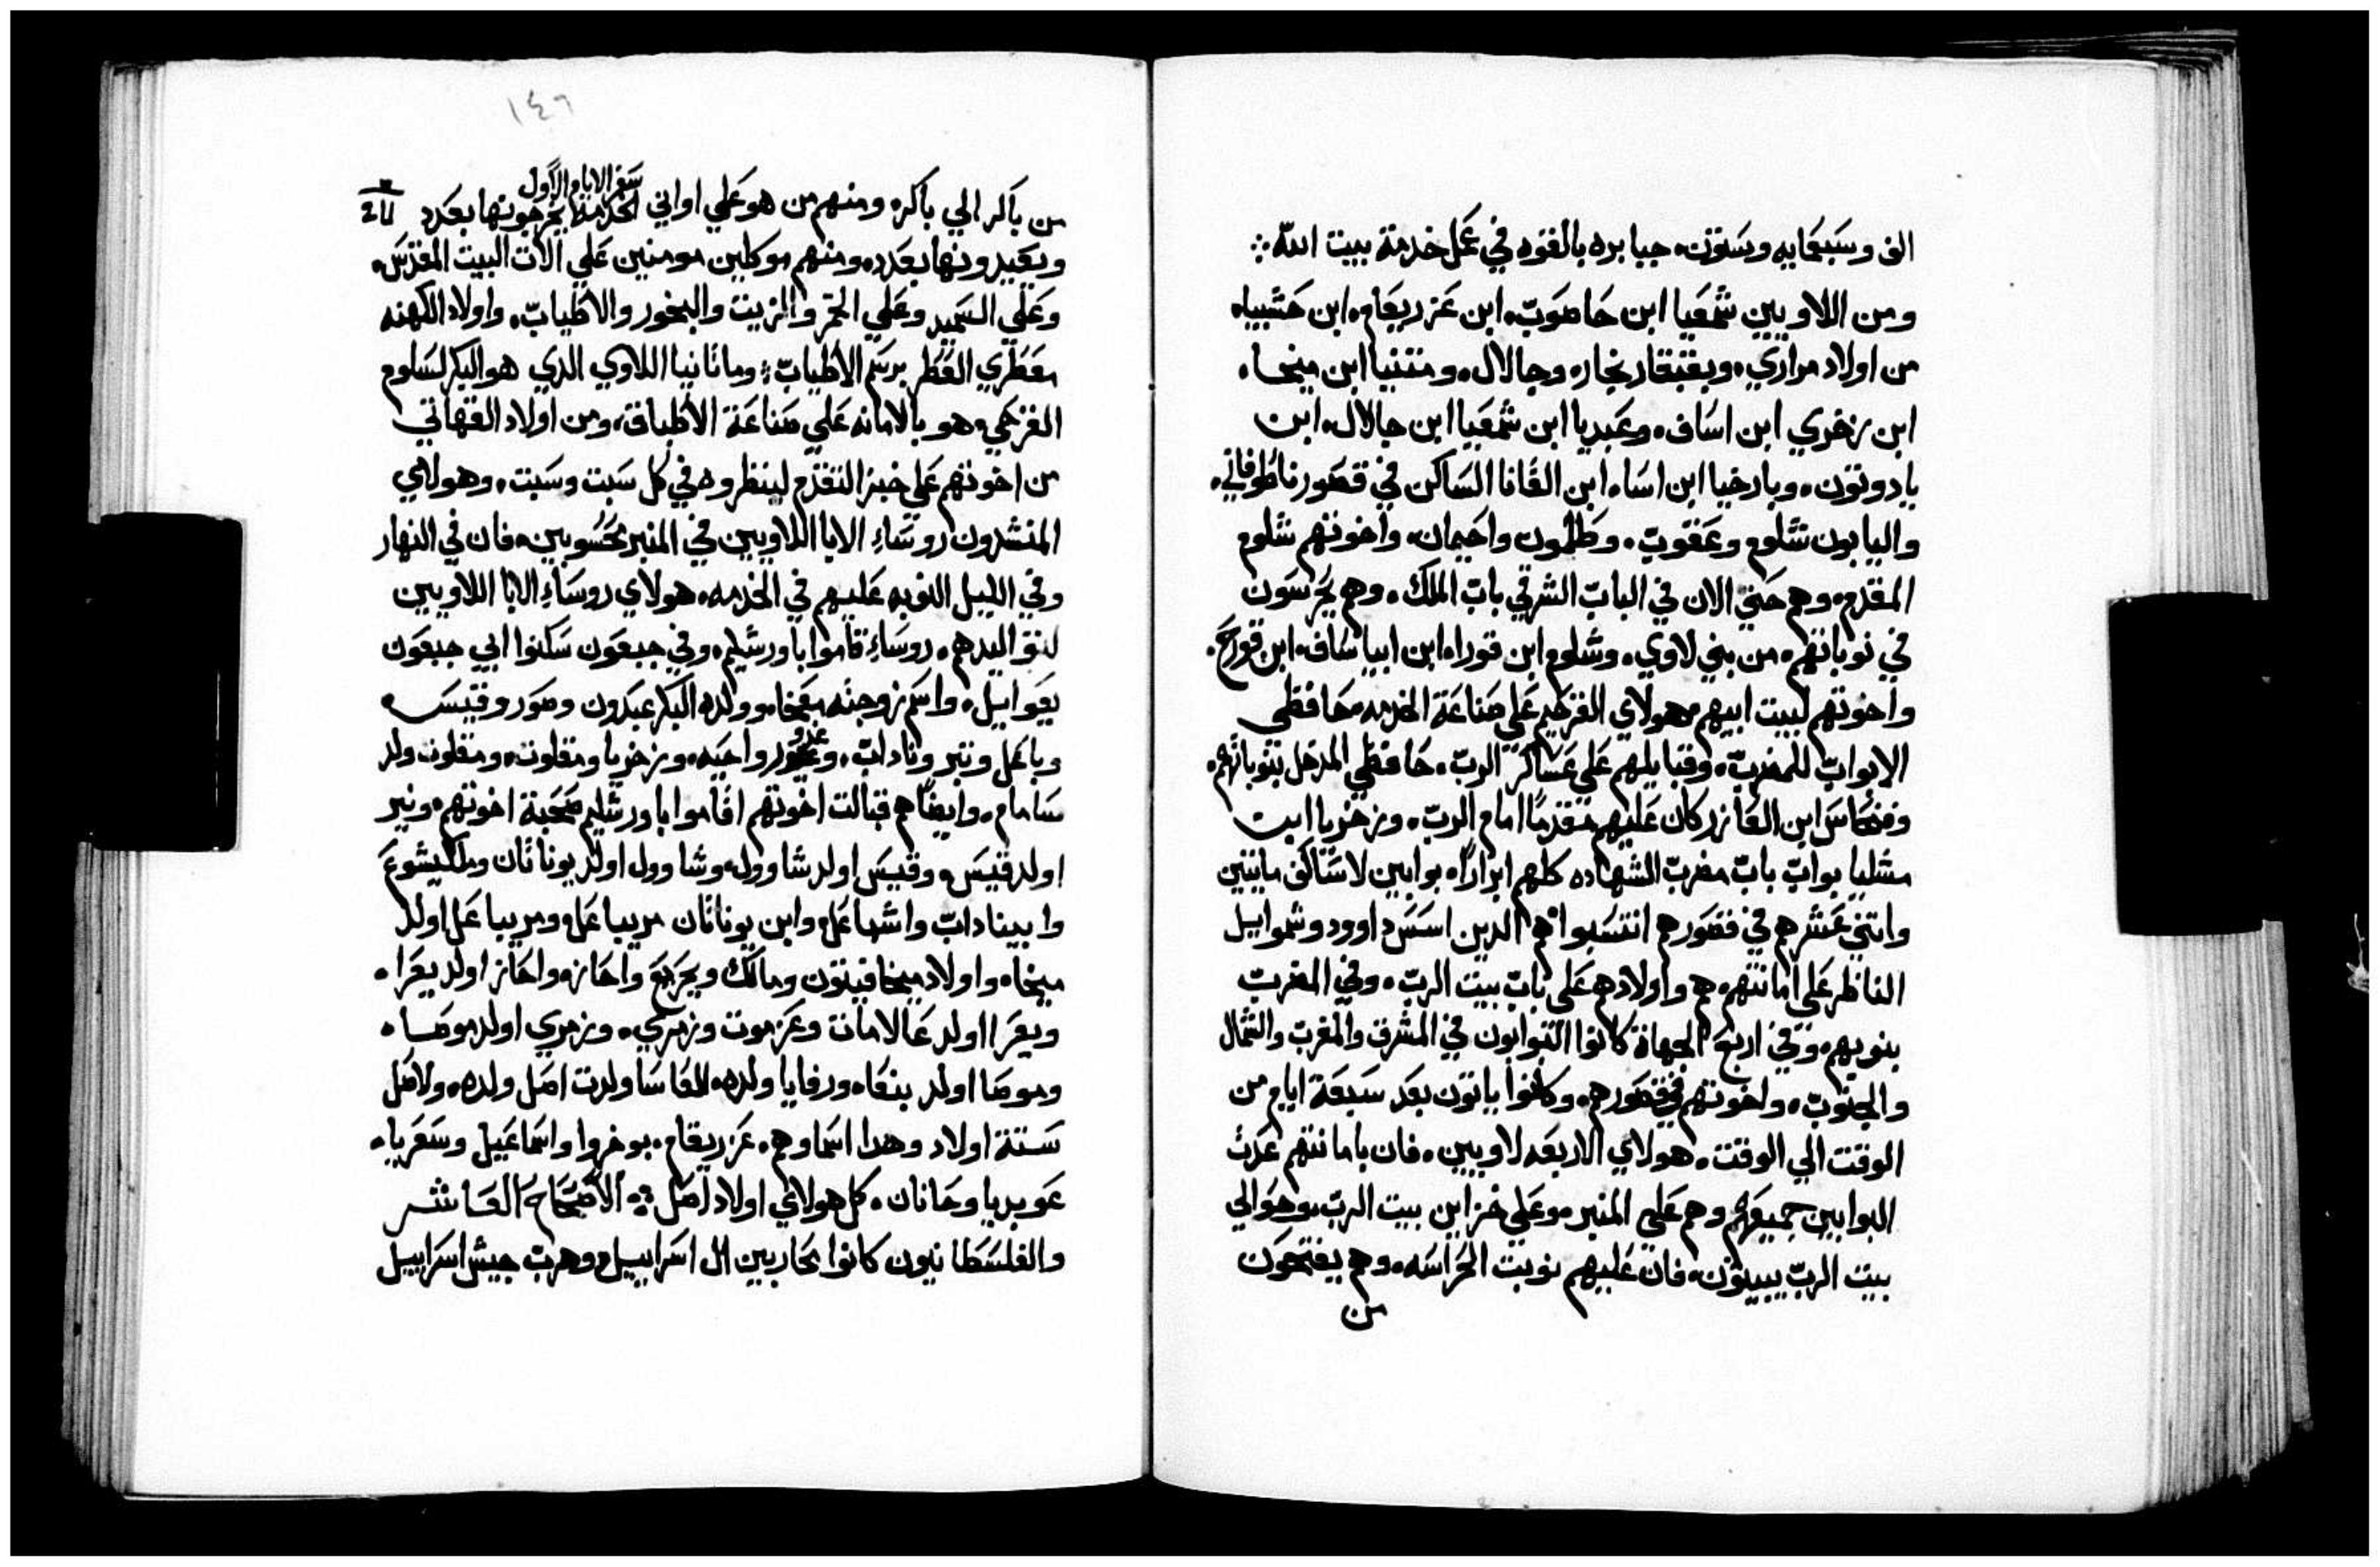 الف وسبعمايه وستون، جبابره بالقوه في عمل خدمة ببيت الله
ومن اللاويين شمعيا ابن حاصوب، ابن عزريقام، ابن حشبياه
من اولاد مراري، وبقبقار نجار، وجالال، ومتنيا ابن ميخا،
ابن زخري ابن اساف، وعبديا ابن شمعيا ابن جالال، ابن
يادوتون، وبارخيا ابن اسا، ابن القانا الساكن في قصور ناطوفاني،
واليابون شلوم وعقوب، وطلمون واحيمان، واخوتهم شلوم
المقدم، وهم حتي الان في الباب الشرقي باب الملك، وهم يحرسون
في نوباتهم، من بني لاوي، وشلوم ابن قورا، ابن ابيا ساف، ابن قورح،
واخوتهم لبيت ابيهم هولاي القرحيم علي صناعة الخدمه، حافظي
الابواب للمضرب، وقبايلهم علي عساكر الرب، حافظي المدخل بنوباتهم،
وفنحاس ابن العازر كان عليهم متقدمًا امام الرب، وزخريا ابن
مشلميا بواب باب مضرب الشهاده كلهم ابرارًا، بوابين لاستاكف مايتين
واتني عشر هم في قصورهم انتسبوا هم الدين اسس داوود وشموايل
الناظر علي امانتهم، هم واولادهم علي باب بيت الرب، وفي المضرب
بنوبهم، وفي اربع الجهات كانوا البوابون في المشرق والمغرب والشمال
والجنوب، واخوتهم في قصورهم، وكانوا ياتون بعد سبعة ايام من
الوقت الي الوقت، هولاي الاربعه لاويين، فان بامانتهم عدت
البوابين جميعهم وهم علي المنبر وعلي خزاين بيت الرب، وحوالي
بيت الرب يبيتون، فان عليهم نوبت الحراسه، وهم يفتحون
من
١٤٦
سفر الايام الاول
من باكر الي باكر، ومنهم من هو علي اواني الخدمه يخرجونها بعدد
ويعيدونها بعدد، ومنهم موكلين مومنين علي الات البيت المقدس،
وعلي السميد وعلي الخمر والزيت والبخور والاطياب، واولاد الكهنه
معطري العطر برسم الاطياب، وماتانيا اللاوي الدي هو البكر لسلوم
القرحي، هو بالامانه علي صناعة الاطباق، ومن اولاد القهاتي
من اخوتهم علي خبز التقدم لينظروه في كل سبت وسبت، وهولاي
المنشدون روساءِ الابا اللاويين في المنبر محسوبين، فان في النهار
وفي الليل النوبه عليهم في الخدمه، هولاي روساءِ الابا اللاويين
لتواليدهم، روساءِ قاموا باورشليم، وفي جبعون سكنوا ابي جبعون
يعوابيل، واسم زوجته معخا، وولده البكر عبدون وصور وقيس
وباعل ونير وناداب، وعدور واحيه، وزخريا ومقلوت، ومقلوت ولد
سامام، وايضًا هم قبالت اخوتهم اقاموا باورشليم صحبة اخوتهم، ونير
اولد قيس، وقيس اولد شاوول، وشاوول اولد يوناتان وملكيشوع
وابيناداب واشباعل، وابن يوناتان مريباعل، ومريباعل اولد
ميخا، واولاد ميخا فيتون ومالك ويحريع واحاز، واحاز اولد يعرا،
ويعرا اولد عالامات وعزموت وزمري، وزمري اولد موصا،
وموصا اولد بنعا، ورفايا ولده، الغاسا ولدت اصل ولده، ولاصل
ستة اولاد وهدا اسماوهم، عزريقام، بوخروا واسماعيل وسعريا،
عوبديا وحانان، كل هولاي اولاد اصل، الاصحاح العاشر
والفلسطانيون كانوا محاربين ال اسراييل، وهرب جيش اسراييل